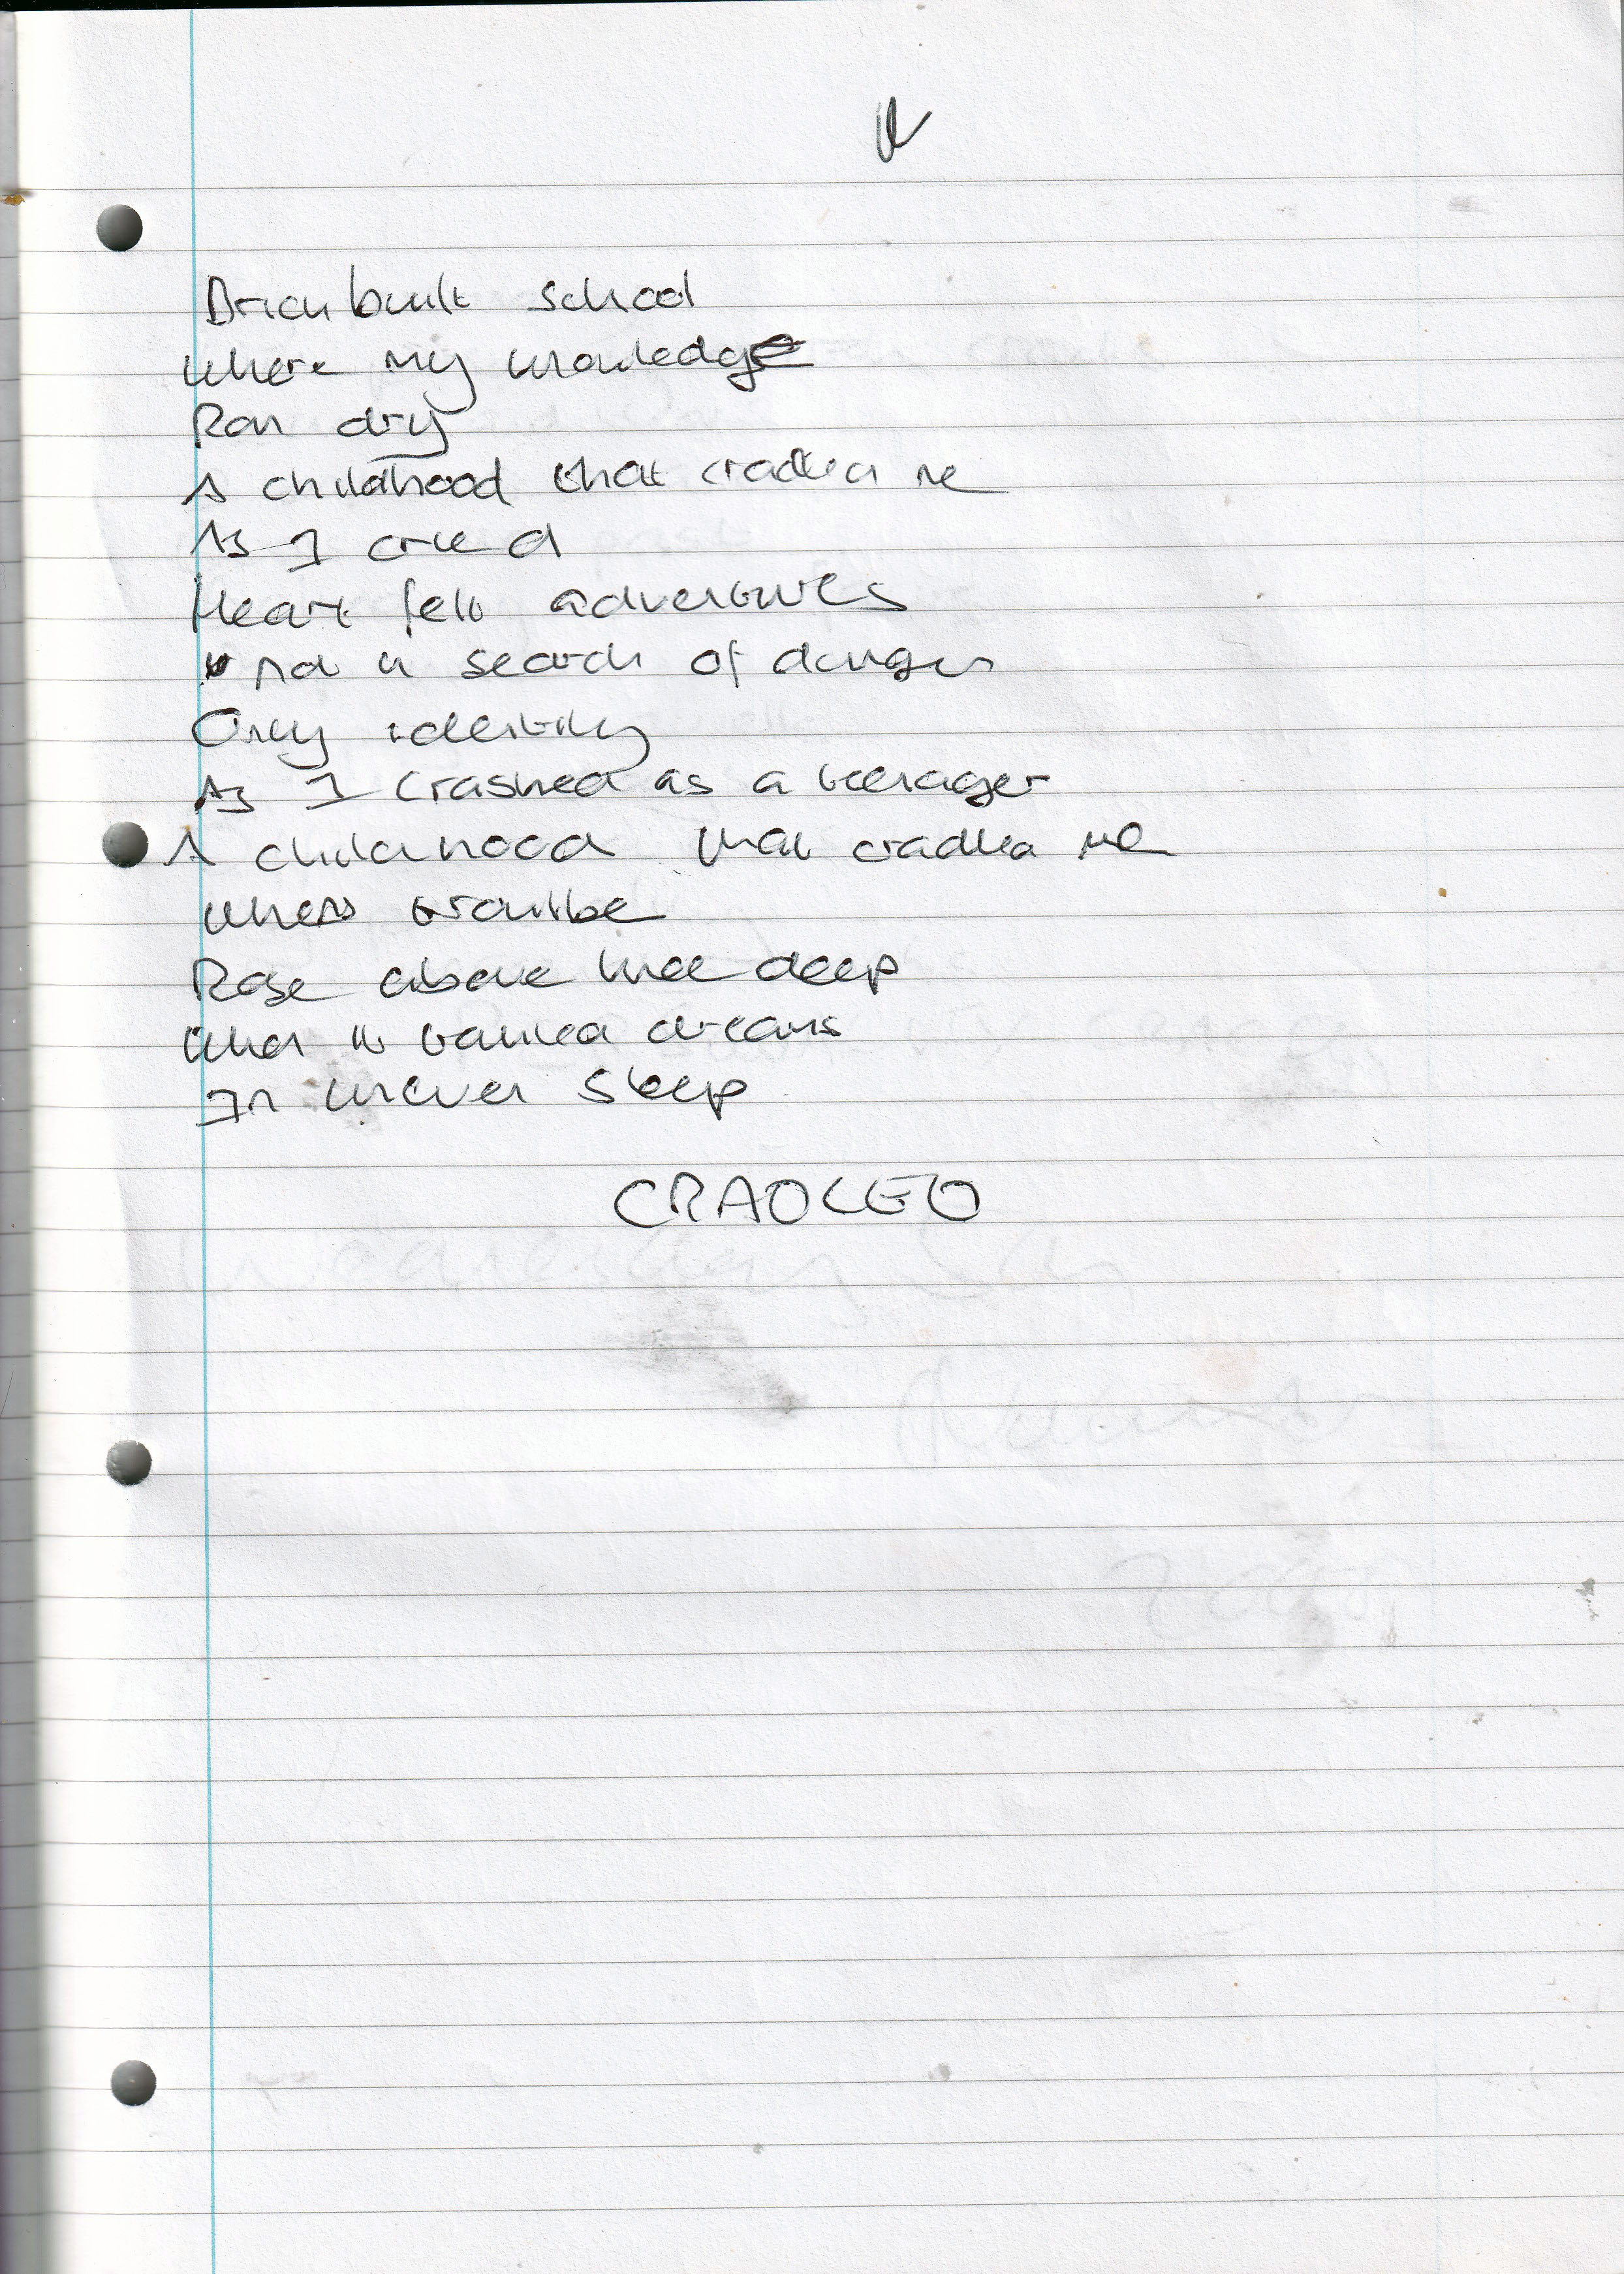 Brick built school
where my knowledge
Ran dry
A childhood that cradled me
As I cried
Heart felt adventures
And a search of danger
Only identity
As I crashed as a teenager
A childhood that cradled me
when trouble
Rose above knee deep
when it talked dreams
In sleep
CRADLED